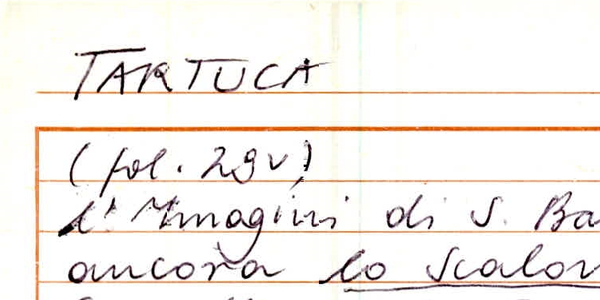 TARTUCA
(fol. 29v)
L'Immagini di S. Ba
ancora lo scalon